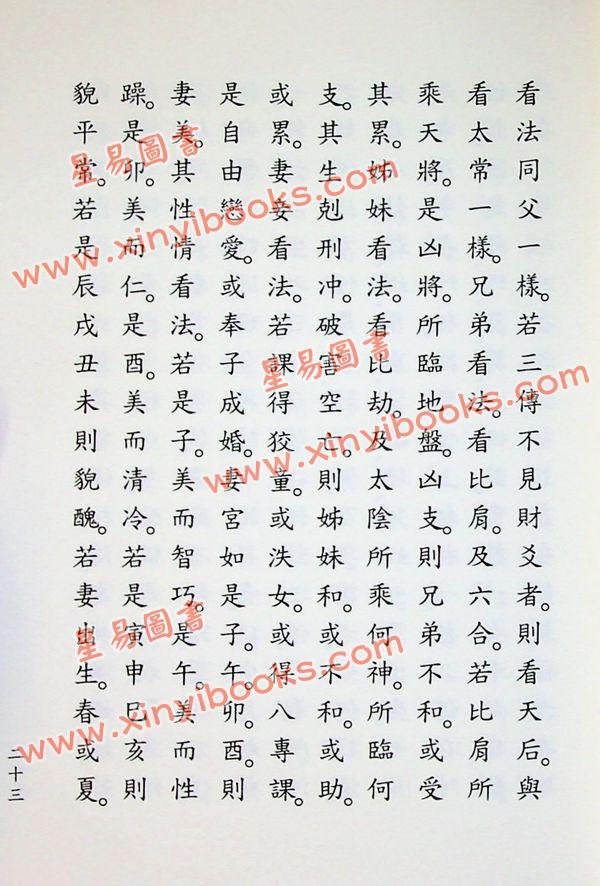 看法同父一樣。若三傳不見財爻者。則看天后。與
看太常一樣。兄弟看法。看比肩。及六合。若比肩所
乘天將。是凶將。所臨地盤。凶支。則兄弟不和。或受
其累。姊妹看法。看比劫。及太陰所乘何神。所臨何
支。其生剋刑冲。破害空亡。則姊妹和。或不和。或助。
或累。妻妾看法。若課得狡童。或泆女。或得八專課。
是自由戀愛。或奉子成婚。妻宮如是子。午。卯。酉。則
妻美。其性情看法。若是子。美而智巧。是午。美而性
躁。是卯。美而仁。是酉。美而清冷。若是寅申巳亥則
貌平常。若是辰戌丑未則貌醜。若妻出生。春或夏。
二十三
星易圖書
www.xinyibooks.com
星易圖書
www.xinyibooks.com
星易圖書
www.xinyibooks.com